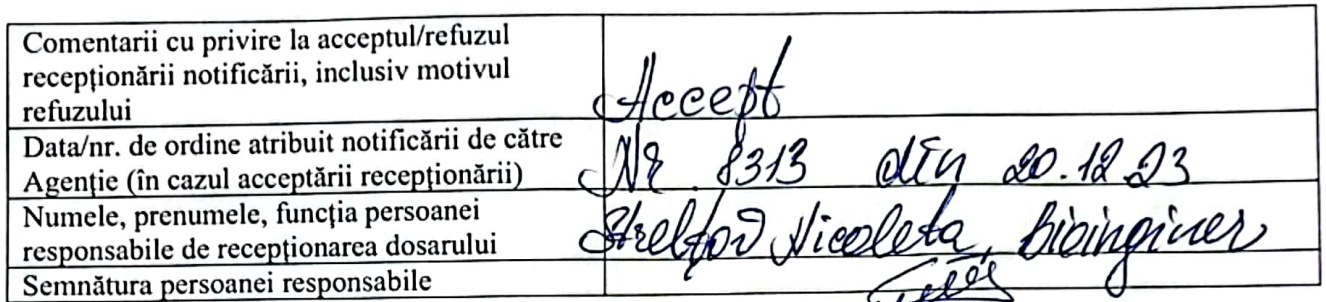 Comentarii cu privire la acceptul/refuzul
recepționării notificării, inclusiv motivul
refuzului
Accept
Data/nr. de ordine atribuit notificării de către
Agenție (în cazul acceptării recepționării)
Nr 8313 din 20.12.23
Numele, prenumele, funcția persoanei
responsabile de recepționarea dosarului
Nicoleta, bioinginer
Semnătura persoanei responsabile